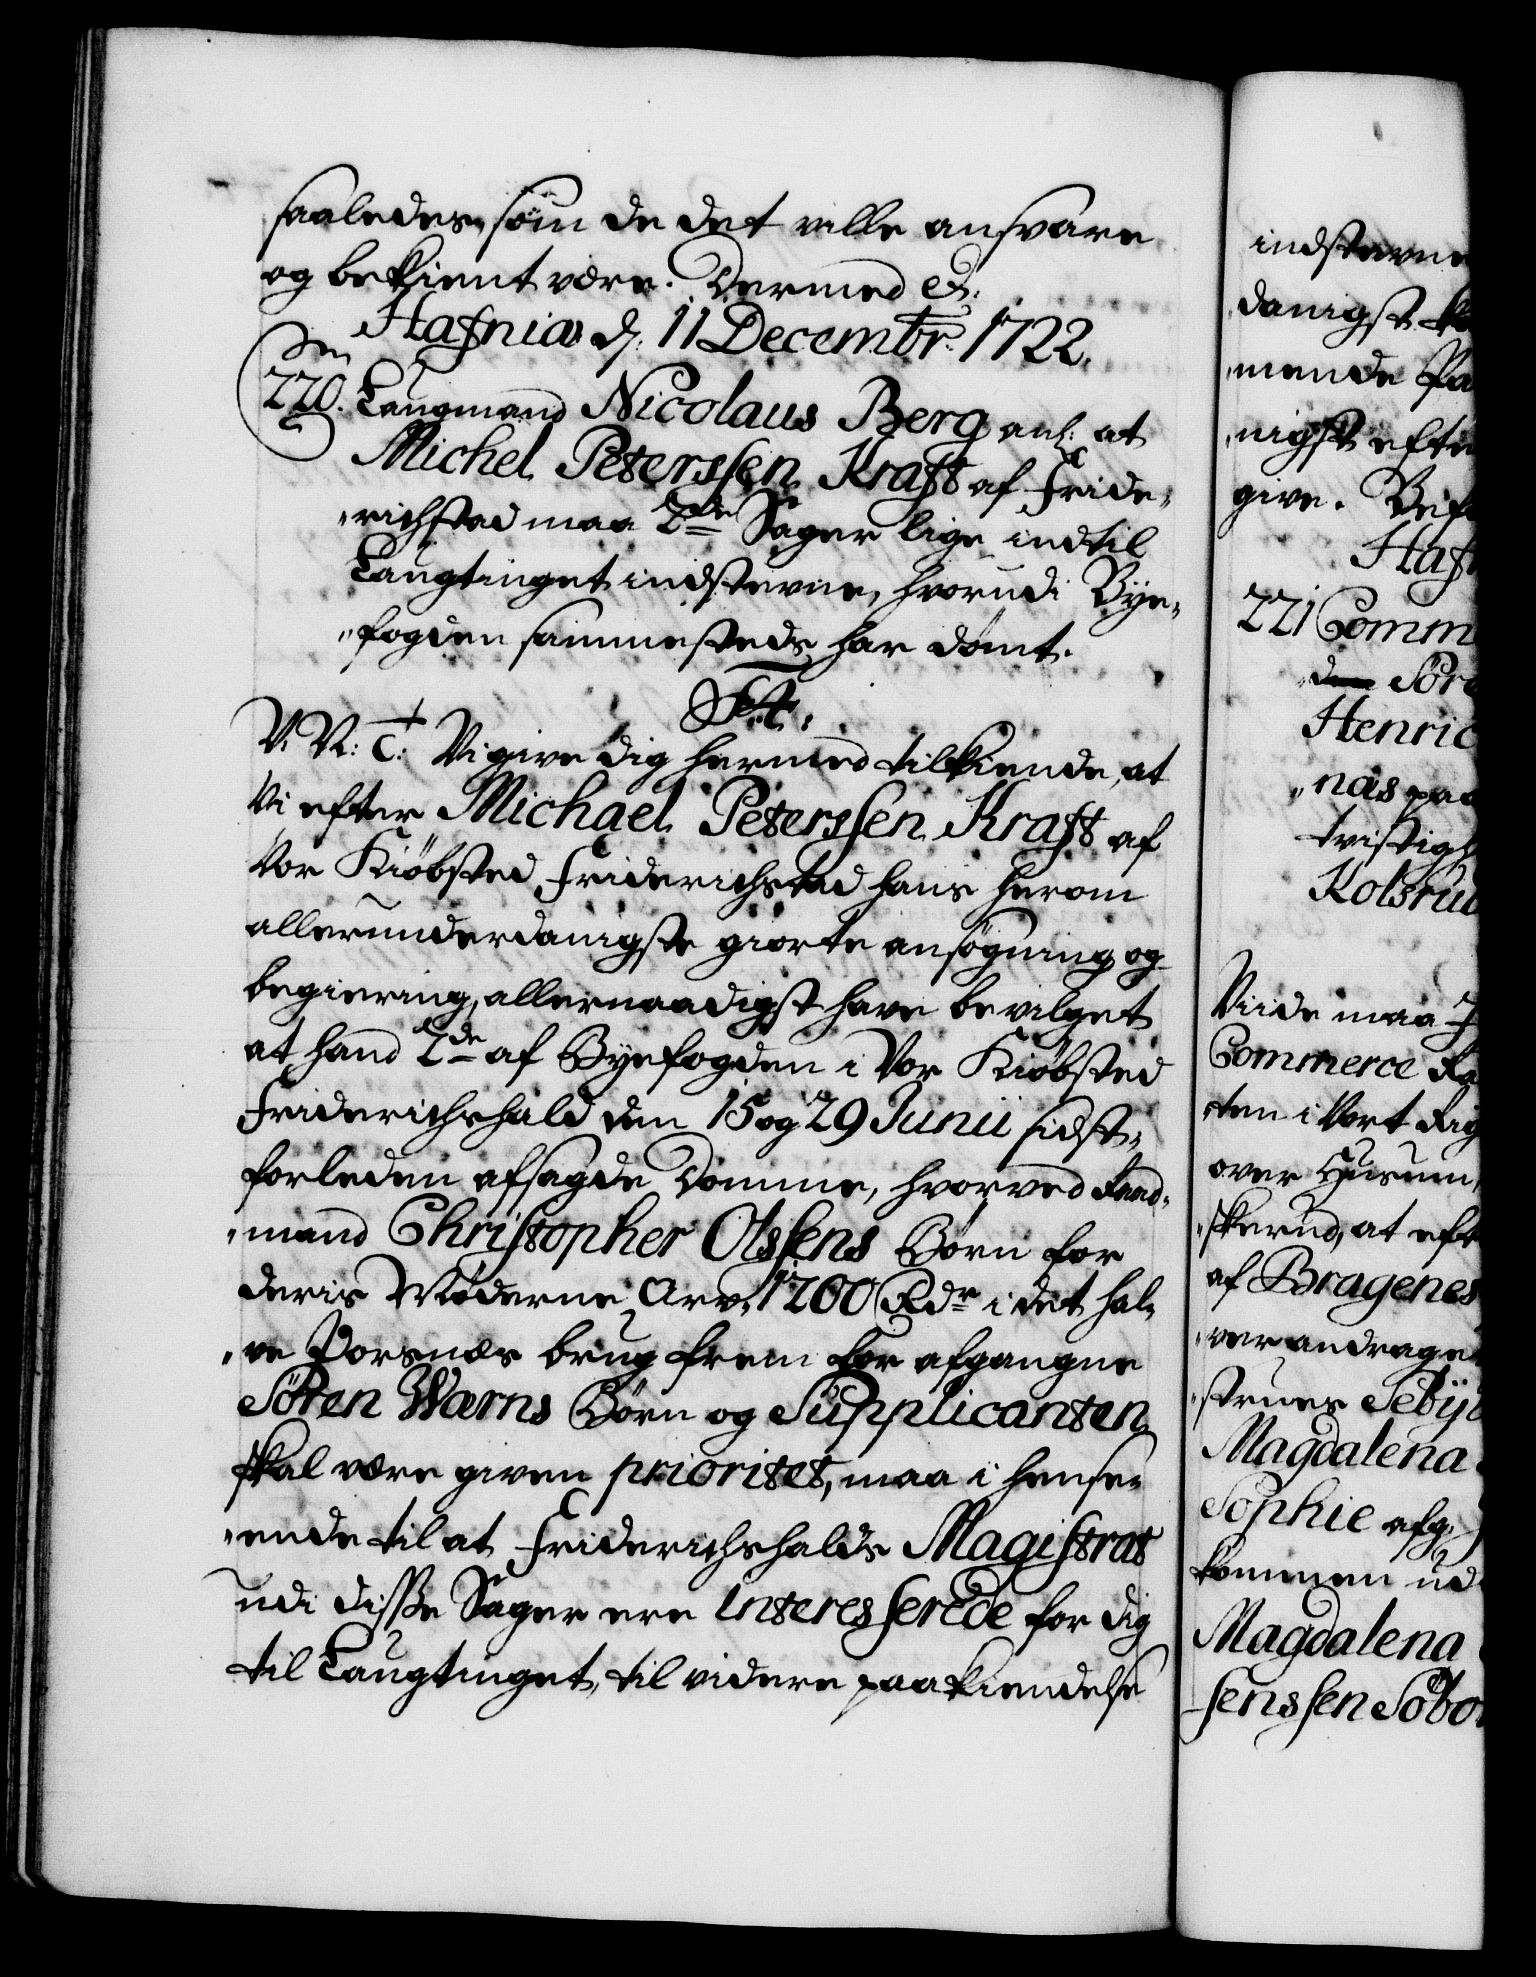 saaledes, som de det ville ansvare
og bekient være. Dermed &.
Hafniæ d. 11 Decembr: 1722.
220. Laugmand Nicolaus Berg anl: at
Michel Peterssen Kraft af Fride-
-richstad maa 2de Sager lige indtil
Laugtinget indstevne, hvorudi Bye-
-fogden sammesteds har dømt.
F4.
V. V: C: Vi give dig hermed tilkiende, at
Vi efter Michael Peterssen Kraft af
Vor Kiøbsted Friderichstad hans herom
allerunderdanigste giorte ansøgning og
begiering, allernaadigst have bevilget
at hand 2de af Byefogden i Vor Kiøbsted
Friderichshald den 15 og 29 Junii sidst-
forleden afsagde Domme, hvorved Raad-
-mand Christopher Olssens Børn for
deris Møderne Arv, 1200 Rdr i det hal-
-ve Porsnæs brug frem for afgangne
Sören Wærns Börn og Supplicanten
skal være given prioritet, maa i hense-
-ende til at Friderichshalds Magistrat
udi disse Sager ere Interesserede for dig
til Laugtinget, til videre paakiendelse
indstevne
danigst
mende
nigst efter
give.
Haf
221 Comm
Sör
Henric
-nas paa
tvistigh
Kolsrud
Viide maa
Commerce Ra
ten i Vort Rig
over Husum,
-skerud, at eft
af Bragenes
-ver andraget
-strues Sebÿl
Magdalena
Sophie afg.
kommen ud
Magdalena
Jenssen Söbo